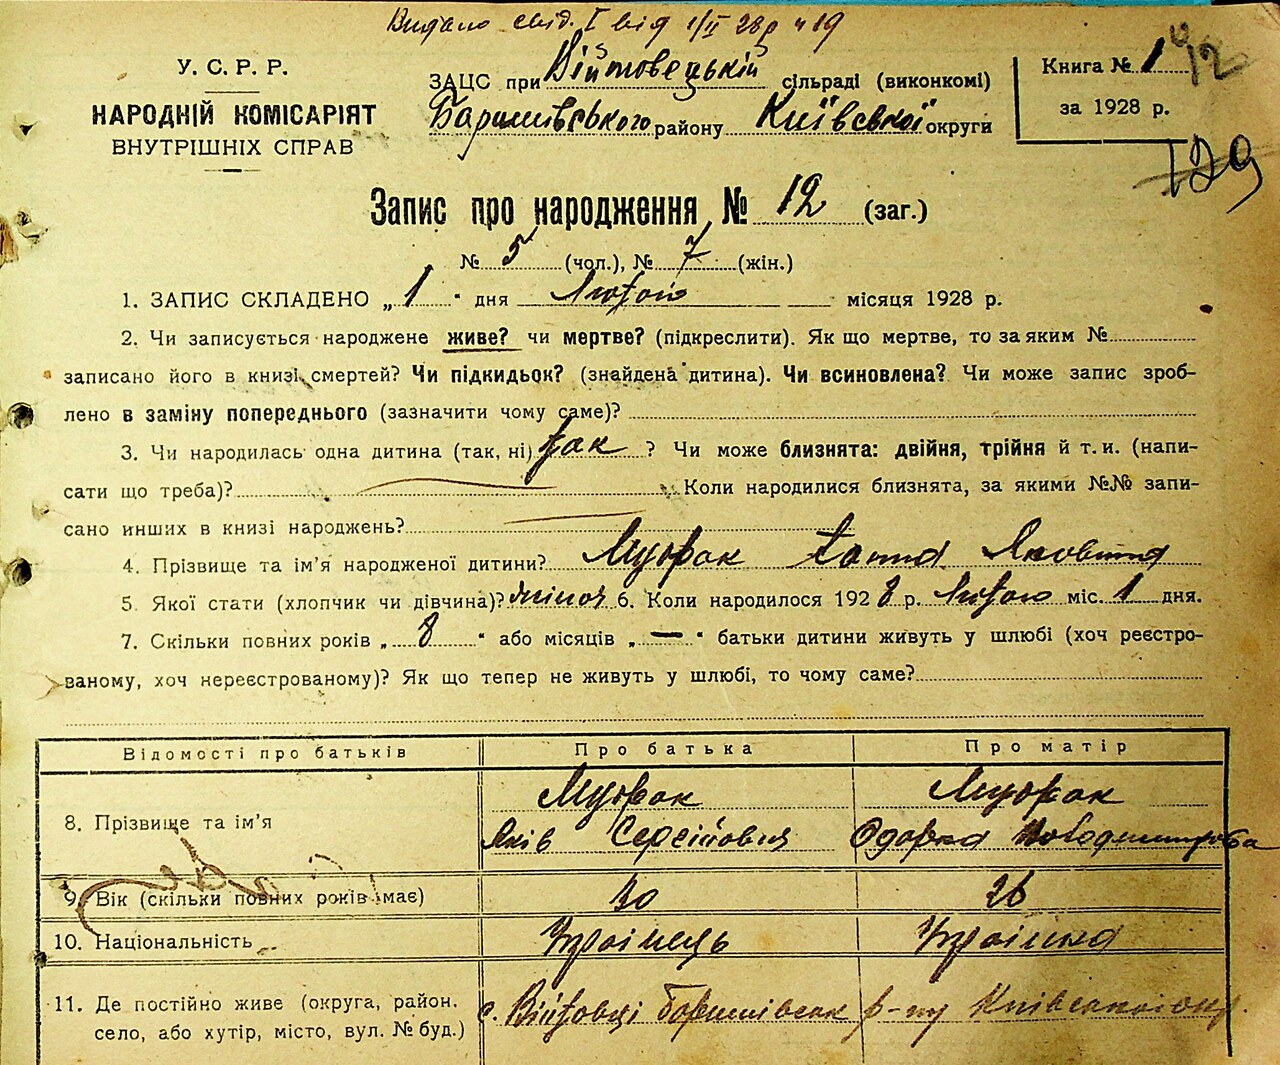 Видано свід. I від 1/II 28р № 19
У. С. Р. Р.
НАРОДНІЙ КОМІСАРІЯТ
ВНУТРІШНІХ СПРАВ
ЗАЦС при Війтовецькій сільраді (виконкомі)
Баришівського району Київської округи
Книга № 1
за 1928 р.
129
Запис про народження № 12 (заг.)
№ 5 (чол.), № 7 (жін.)
1. ЗАПИС СКЛАДЕНО „ 1 " дня Лютого місяця 1928 р.
2. Чи записується народжене живе? чи мертве? (підкреслити). Як що мертве, то за яким №
записано його в книзі смертей? Чи підкидьок? (знайдена дитина). Чи всиновлена? Чи може запис зроб-
лено в заміну попереднього (зазначити чому саме)?
3. Чи народилась одна дитина (так, ні) так ? Чи може близнята: двійня, трійня й т. и. (напи-
сати що треба)? Коли народилися близнята, за якими №№ запи-
сано инших в книзі народжень?
4. Прізвище та ім'я народженої дитини? Яковна
5. Якої стати (хлопчик чи дівчина)? жіноч 6. Коли народилося 1928 р. Лютого міс. 1 дня.
7. Скільки повних років „ 8 " або місяців „ — " батьки дитини живуть у шлюбі (хоч реєстро-
ваному, хоч нереєстрованому)? Як що тепер не живуть у шлюбі, то чому саме?
Відомості про батьків Про батька Про матір
8. Прізвище та ім'я
Яків Сергійович Одарка Володимирова
9. Вік (скільки повних років має) 30 26
10. Національність Українець Українка
11. Де постійно живе (округа, район.
село, або хутір, місто, вул. № буд.) с. Війтовці Баришівськ р-ну Київської окр.